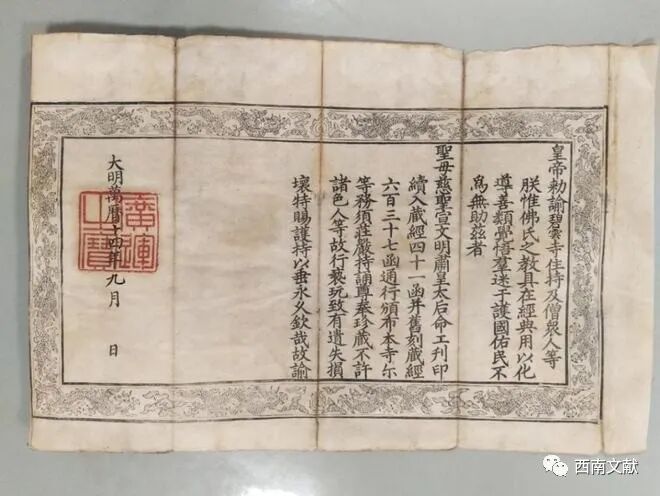 皇帝勅諭碧雲寺住持及僧衆人等
朕惟佛氏之教具在經典用以化
導善類覺悟羣迷于護國佑民不
爲無助茲者
聖母慈聖宣文明肅皇太后命工刊印
續入藏經四十一函并舊刻藏經
六百三十七函通行頒布本寺尒
等務須莊嚴持誦尊奉珍藏不許
諸色人等故行褻玩致有遺失損
壞特賜護持以垂永久欽哉故諭
大明萬曆十四年九月 日
廣運
之寶
西南文献